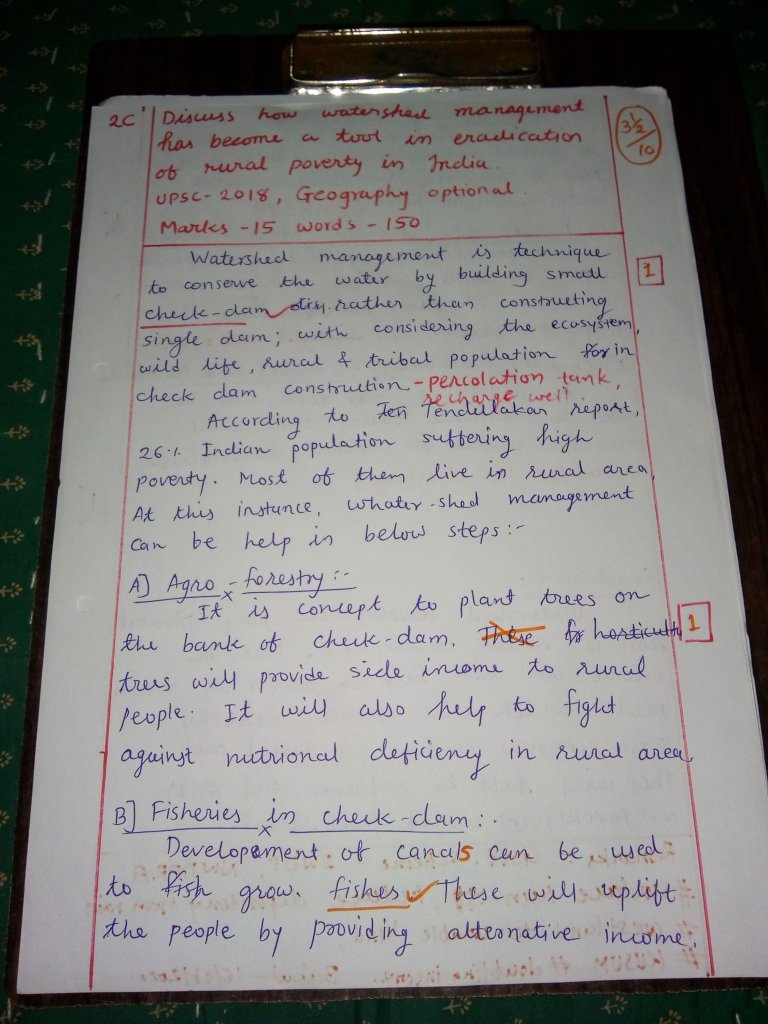 2C Discuss how watershed management
has become a tool in eradication
of rural poverty in India.
UPSC-2018, Geography optional.
Marks -15 words -150
3½/10
Watershed management is technique
to conserve the water by building small
1
check-dam rather than constructing
single dam; with considering the ecosystem,
wild life, rural & tribal population for in
check dam construction - percolation tank,
recharge well
According to Ten Tendulakar report,
26% Indian population suffering high
poverty. Most of them live in rural area,
At this instance, whater-shed management
can be help in below steps:-
A] Agro-forestry:-
It is concept to plant trees on
the bank of check-dam. These for horticultu
1
trees will provide side income to rural
people. It will also help to fight
against nutrional deficiency in rural area
B] Fisheries in check-dam:-
Development of canals can be used
to fish grow. fishes These will uplift
the people by providing alternative income.